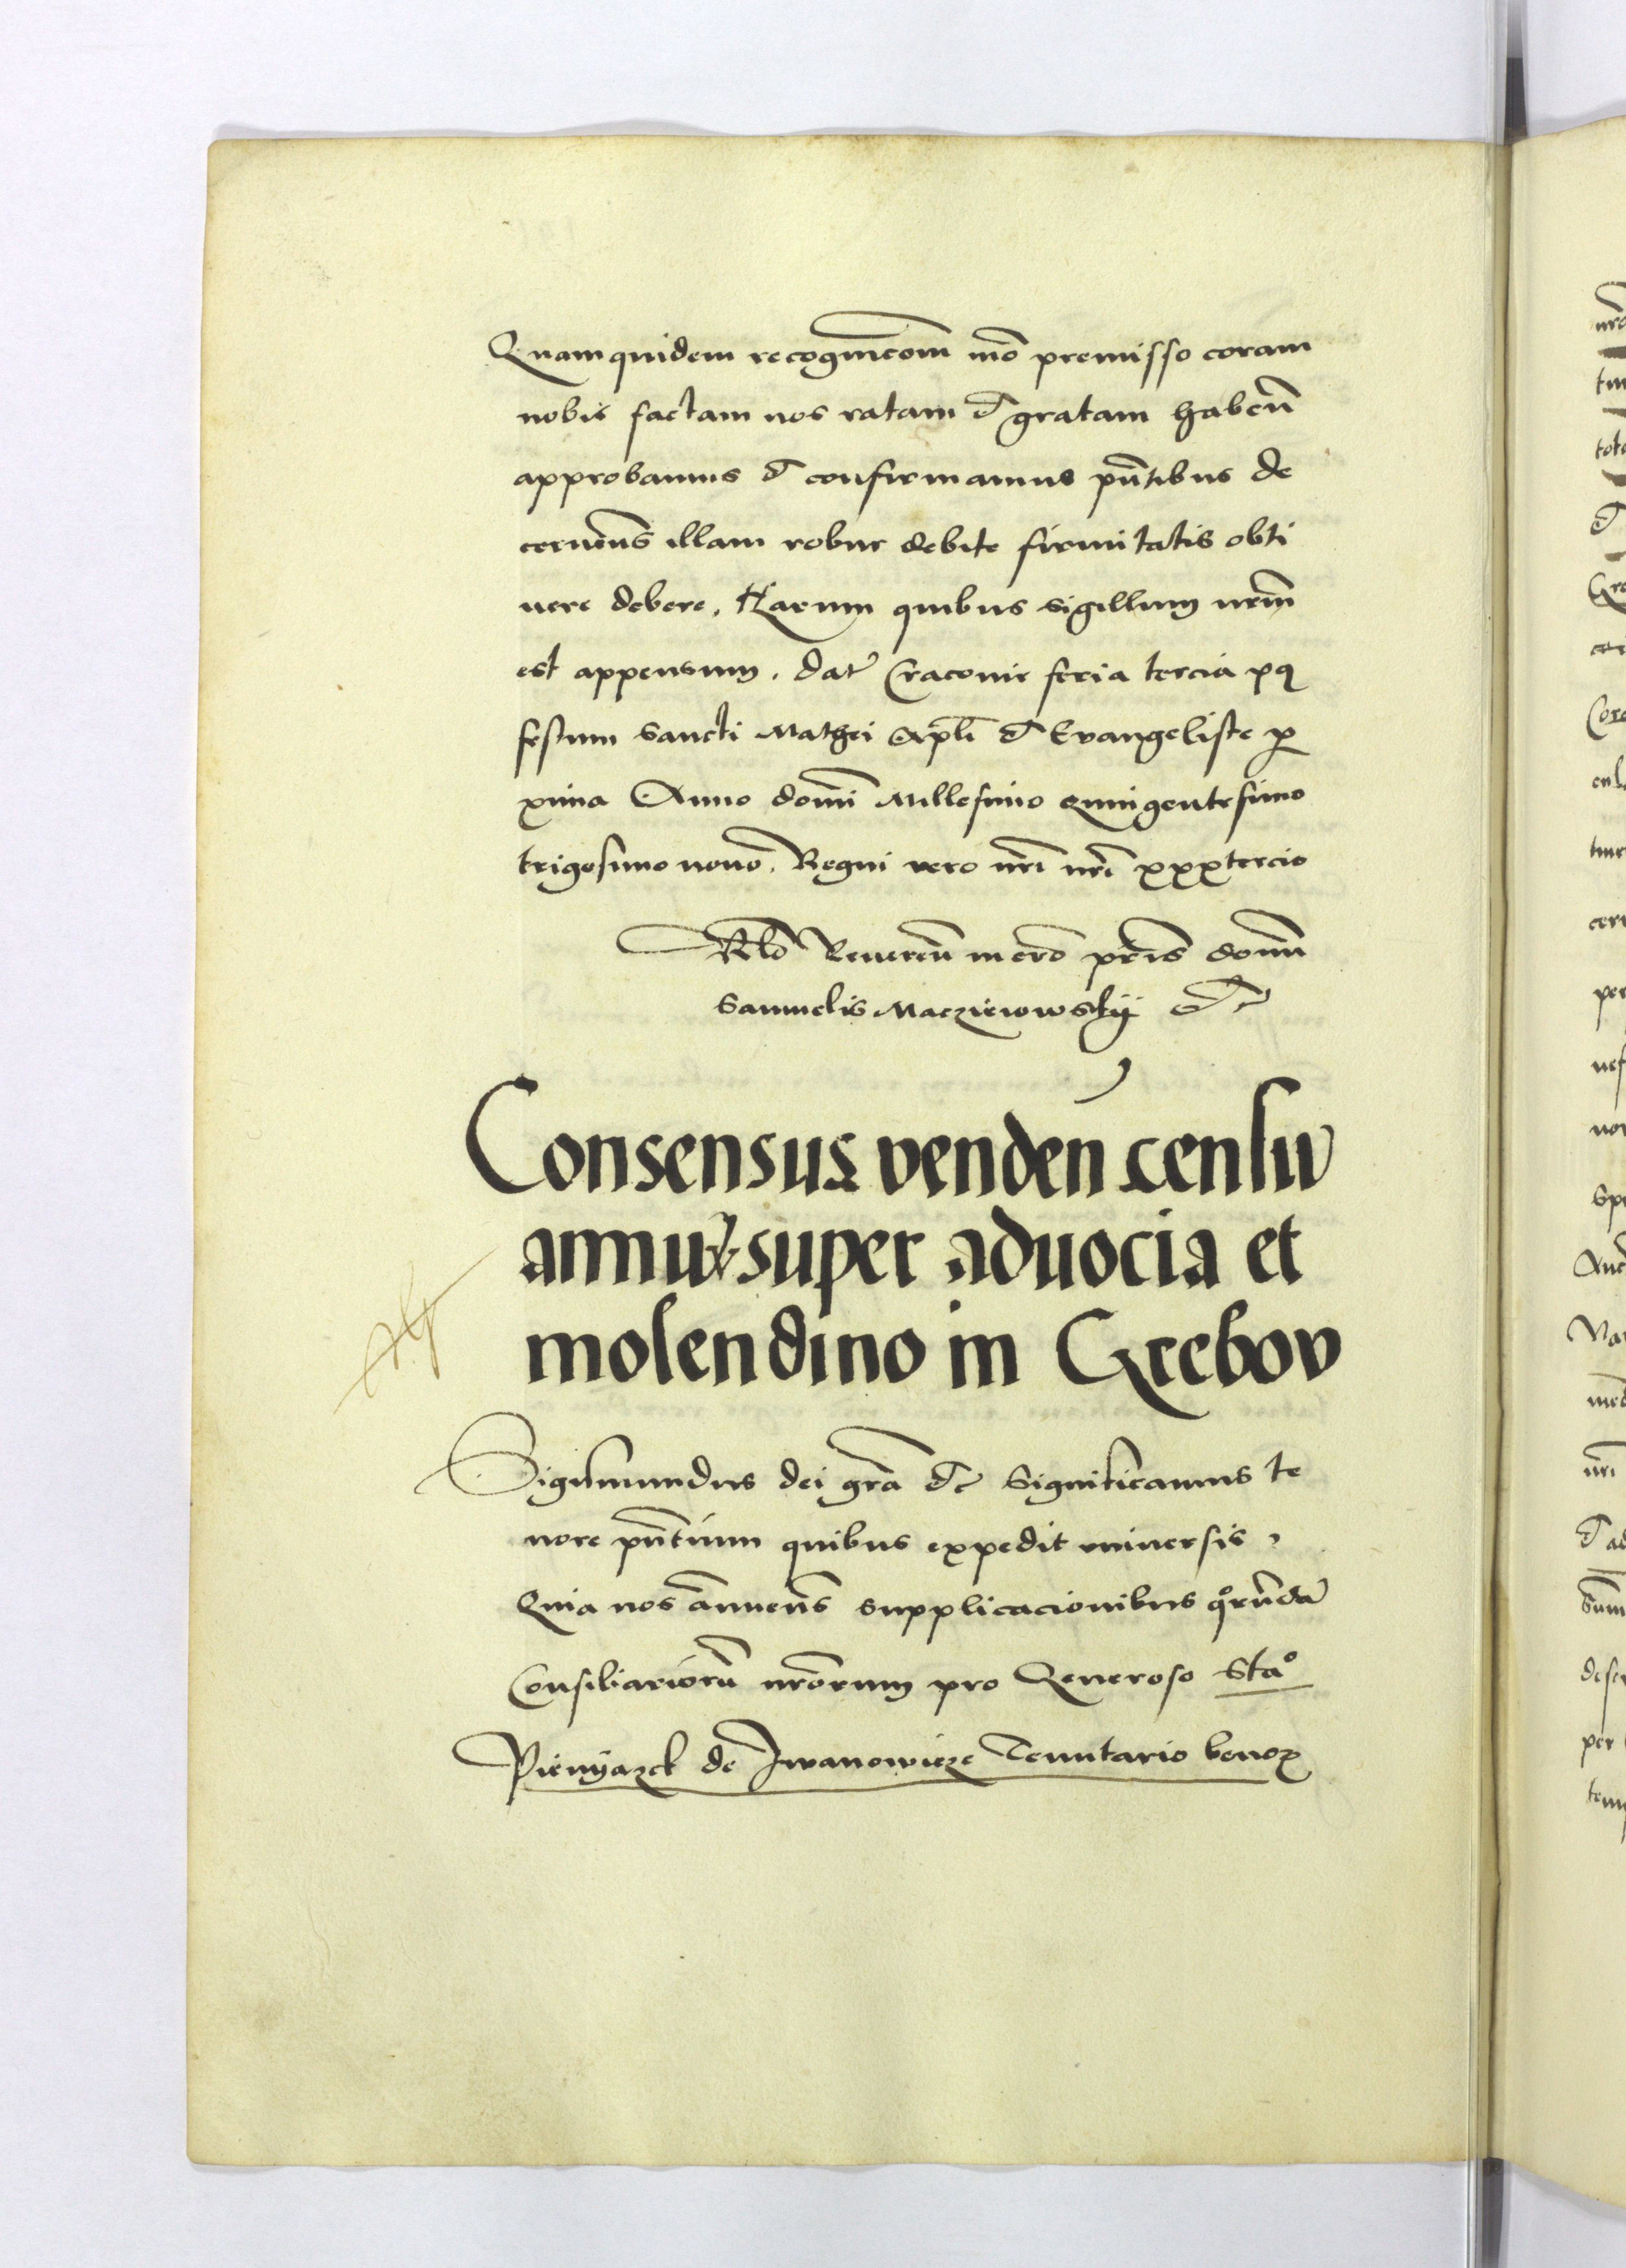 Quamquidem recognicom̄ mō premisso coram
nobis factam nos ratam et gratam habeñ
approbamus et confirmamus pn̄tibus de
cernen̄s illam robur debite firmitatis obti
nere debere. Harum quibus sigillum nr̄m
est appensum. Dat Cracovie feria tercia pq
festum Sancti Mathei Apl̄i et Evangeliste p
xima Anno domī Millesimo quingentesimo
trigesimo nono. Regni vero nr̄i nr̄i xxxtercio
Rl̄o Reveren̄ in cr̄o pr̄is domī
Samuelis Maczieiowskij etc
Consensus venden̄ censu
annui super aduocia et
molendino in Grebov
Sigismundus dei gr̄a etc Significamus te
nore pn̄tium quibus expedit universis,
Quia nos annuen̄s supplicacionibus qorūda
Consiliariorū nr̄orum pro Generoso Stao
Pienyazek de Iwanowicze Tenutario bonor